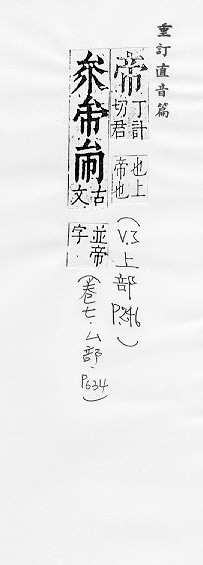 重訂直音篇
帝 丁計切君也上帝也 (V.3上部P.246)
古文 並帝字 (卷七.厶部.P634)